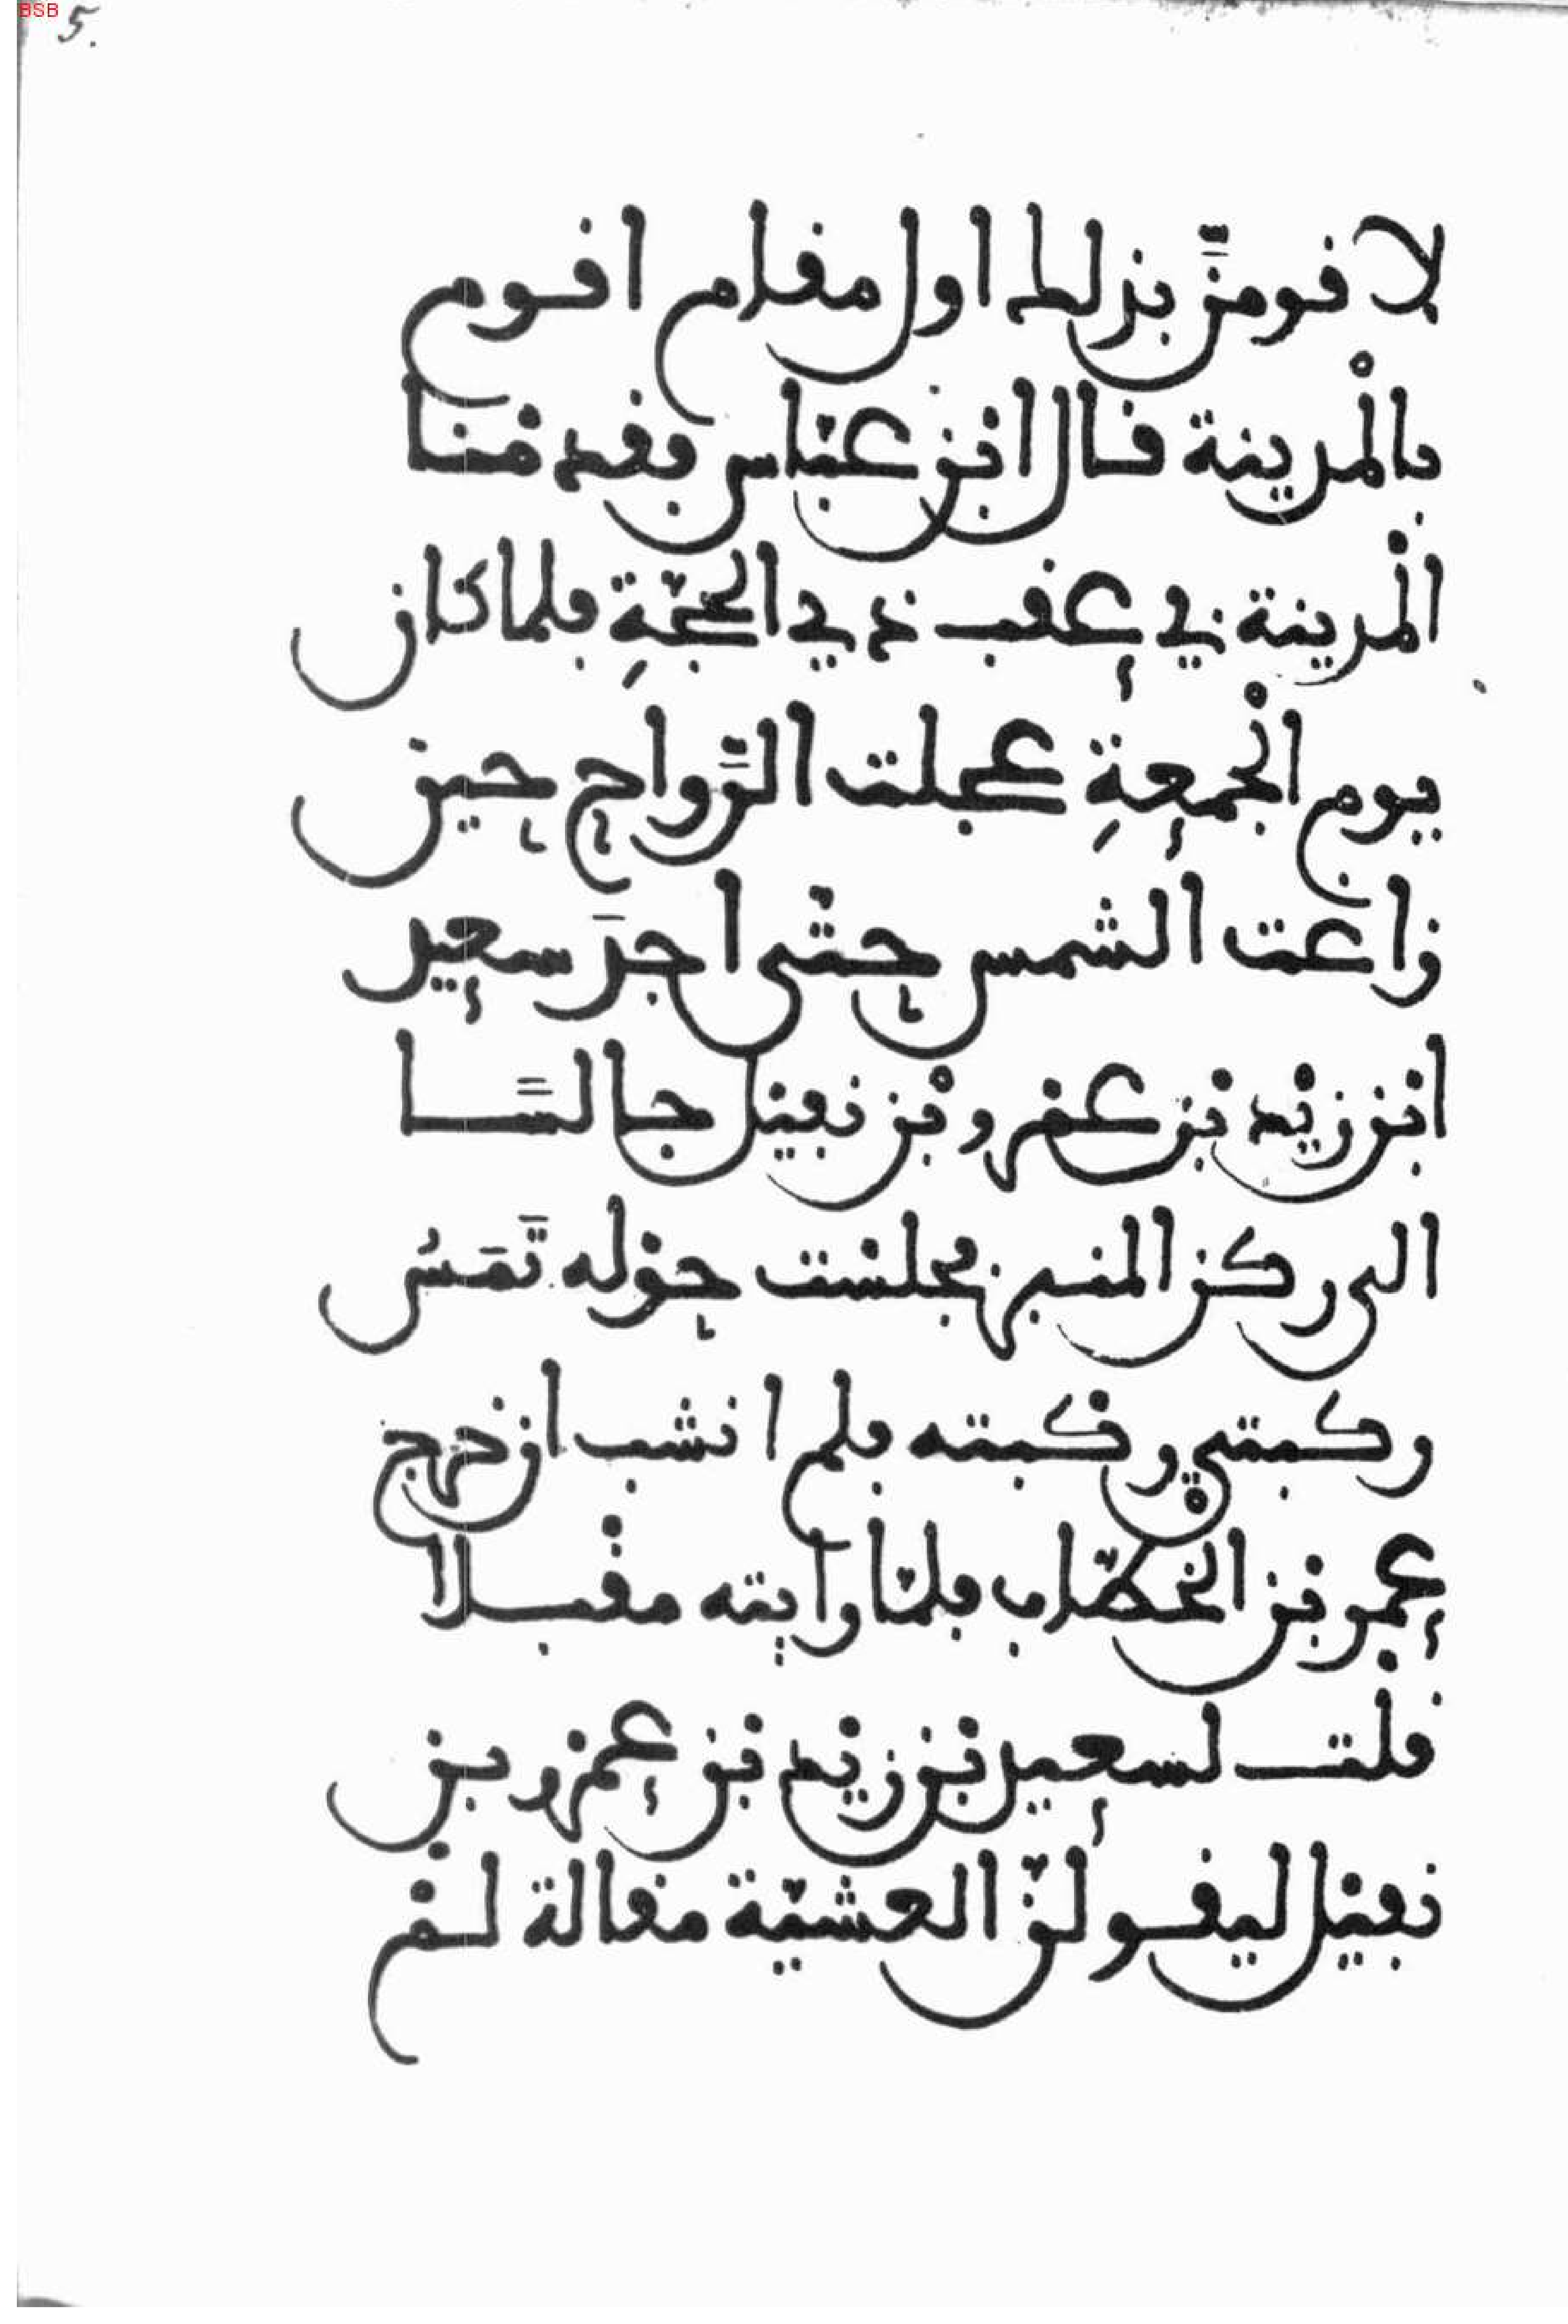 BSB
5.
لا قومنّ بذلك اول مقام اقوم
بالْمدينة قال ابْن عبّاس فقدمْنا
الْمدينة في عقب ذي الحجّةِ فلما كان
يوم الْجمعةِ عجلت الرَّواح حين
زاغت الشمس حتّى اجدَ سعيد
ابْن زيْد بْن عمْرو بْن نفيْل جالسًا
الى ركن المنبر فجلسْت حوْله تَمَسُّ
ركبتي ركْبته فلم انشب ان خرج
عمر بْن الخطّاب فلمّا رايته مقْبلا
قلْت لسعيد بْن زيْد بْن عمْرو بن
نفيْل ليقولنّ العشيّة مقالة لمْ